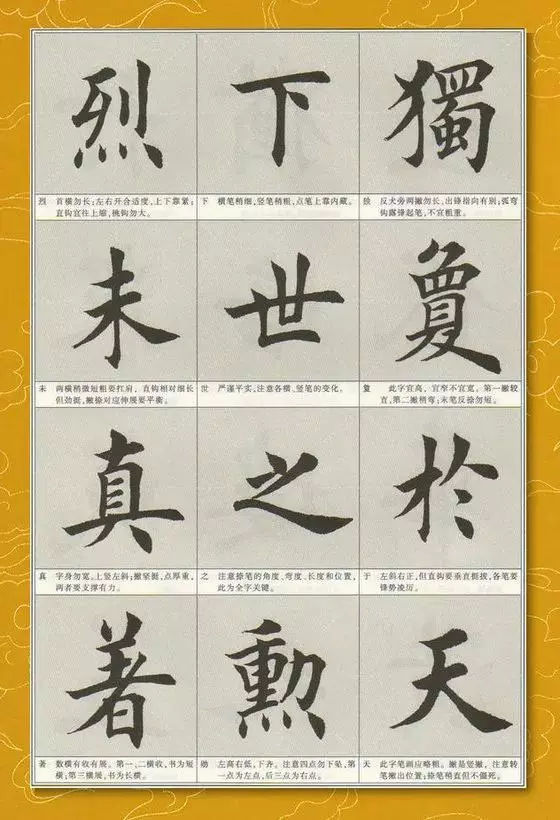 獨
独 反犬旁两撇勿长,出锋指向有别;弧弯
钩露锋起笔,不宜粗重。
夐
夐 此字宜高,宜窄不宜宽。第一撇较
直,第二撇稍弯;末笔反捺勿短。
於
于 左斜右正,但直钩要垂直挺拔,各笔要
锋势凌厉。
天
天 此字笔画应略粗。撇是竖撇,注意转
笔撇出位置;捺笔稍直但不僵死。
下
下 横笔稍细,竖笔稍粗,点笔上靠内藏。
世
世 严谨平实,注意各横、竖笔的变化。
之
之 注意捺笔的角度、弯度、长度和位置,
此为全字关键。
勲
勋 左高右低,下齐。注意四点勿下坠,第
一点为左点,后三点为右点。
烈
烈 首横勿长;左右开合适度,上下靠紧;
直钩宜往上缩,挑钩勿大。
未
未 两横稍微短粗要扛肩,直钩相对细长
但劲挺,撇捺对应伸展要平衡。
真
真 字身勿宽。上竖左斜;撇坚挺,点厚重,
两者要支撑有力。
著
著 数横有收有展。第一、二横收,书为短
横;第三横展,书为长横。